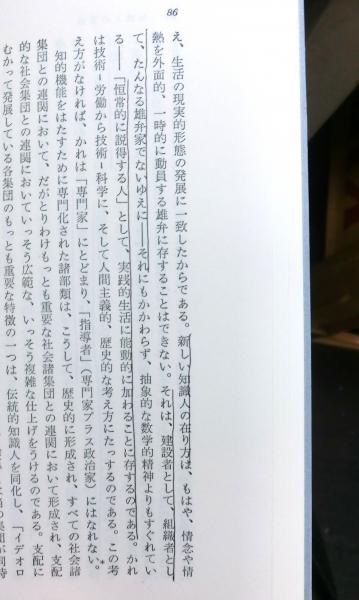 86
え、生活の現実的形態の発展に一致したからである。新しい知識人の在り方は、もはや、情念や情
熱を外面的、一時的に動員する雄弁に存することはできない。それは、建設者として、組織者とし
て、たんなる雄弁家でないゆえに――それにもかかわらず、抽象的な数学的精神よりもすぐれてい
る――「恒常的に説得する人」として、実践的生活に能動的に加わることに存するのである。かれ
は技術-労働から技術-科学に、そして人間主義的、歴史的な考え方にたっするのである。この考
え方がなければ、かれは「専門家」にとどまり、「指導者」(専門家プラス政治家)にはなれない。*
知的機能をはたすために専門化された諸部類は、こうして、歴史的に形成され、すべての社会諸
集団との連関において、だがとりわけもっとも重要な社会諸集団との連関において形成され、支配
的な社会集団との連関においていっそう広範な、いっそう複雑な仕上げをうけるのである。支配に
むかって発展している各集団のもっとも重要な特徴の一つは、伝統的知識人を同化し、「イデオロ